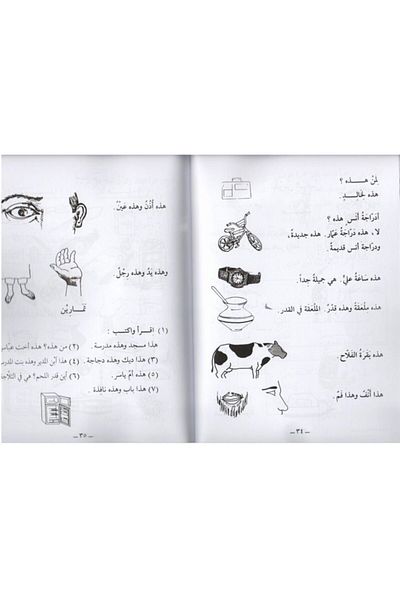 لِمَنْ هـذِه ؟
هذه لِخَالِدٍ.
أَدَرَّاجَةُ أَنَسٍ هذِه ؟
لا، هذه دَرَّاجَةُ عَمَّارٍ. هذه جديدةٌ،
ودراجةُ أنسٍ قديمةٌ.
هذه سَاعَةُ عليٍّ. هي جميلةٌ جداً.
هذه مِلْعَقَةٌ وهذه قِدْرٌ. المِلْعَقَةُ في القِدْرِ.
هذه بَقَرَةُ الفَلَّاحِ.
هذا أَنْفٌ وهذا فَمٌ.
ـ ٣٤ ـ
هذه أُذُنٌ وهذه عَيْنٌ.
وهذه يَدٌ وهذه رِجْلٌ.
تَمَارِيْن
(١) اقرأ واكتب :
هذا مسجد وهذه مدرسة. (٢) من هذه؟ هذه أخت
(٣) هذا ديك وهذه دجاجة. (٤) هذا ابْن المدير وهذه بنت
(٥) هذه أمّ ياسر. (٦) أين قدر اللحم؟ هي في
(٧) هذا باب وهذه نافذة.
ـ ٣٥ ـ